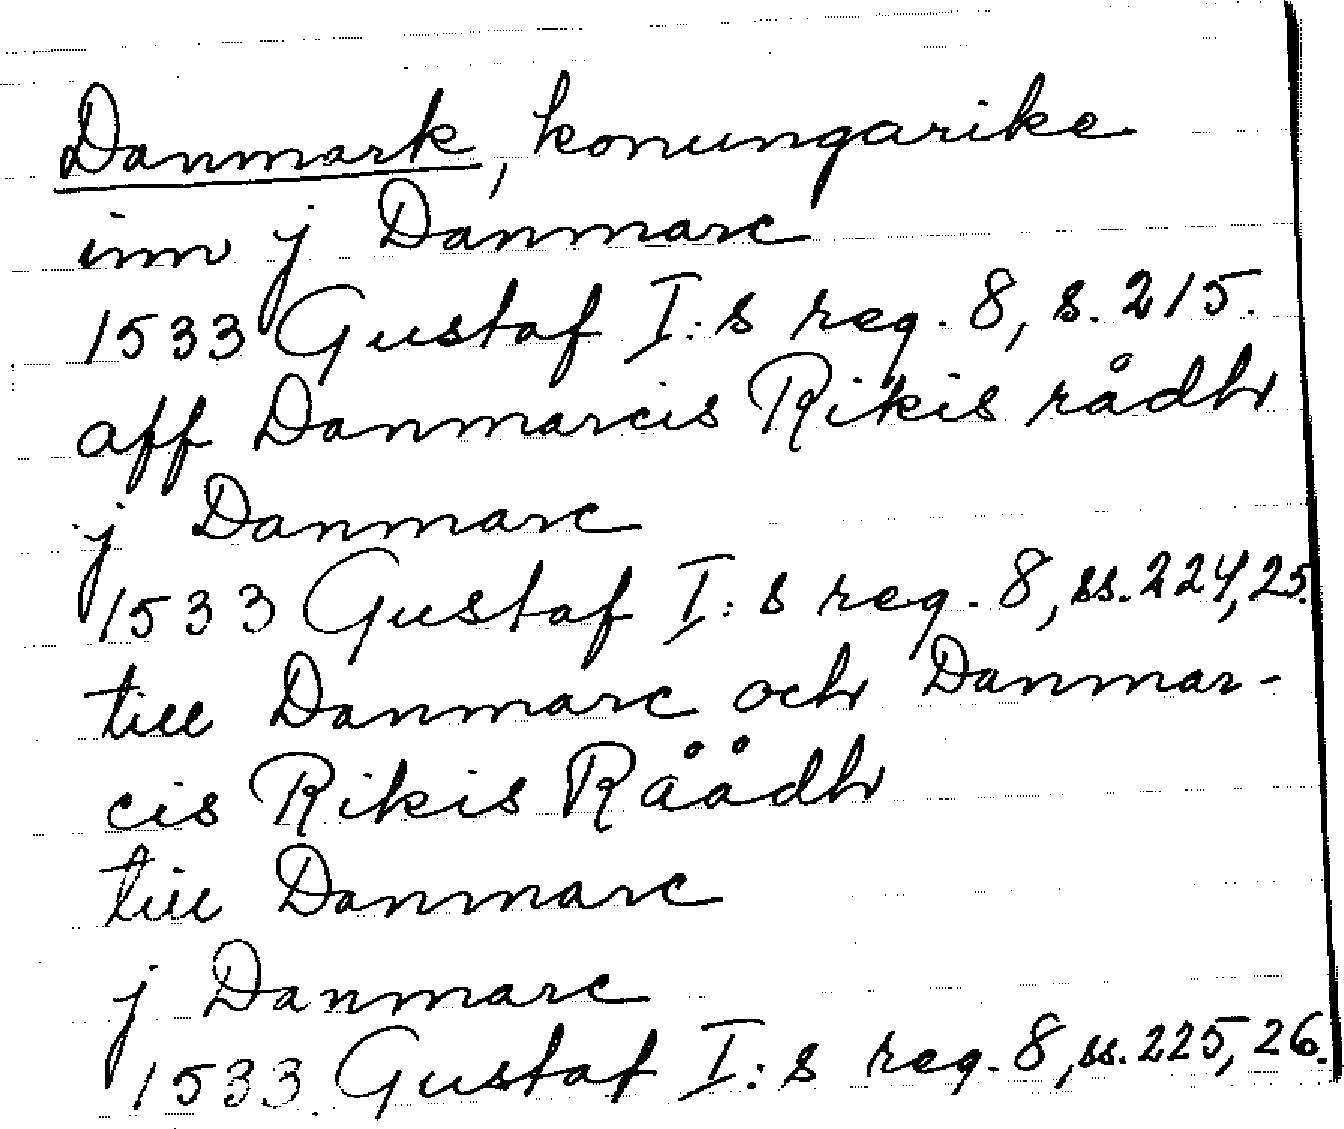 Danmark, konungarike
inn j Danmarc
1533 Gustaf I:s reg. 8, s. 215.
aff Danmarcis Rikis rådh
j Danmarc
1533 Gustaf I:s reg. 8, ss. 224, 25.
till Danmarc och Danmar-
cis Rikis Råådh
till Danmarc
j Danmarc
1533 Gustaf I:s reg. 8, ss. 225, 26.